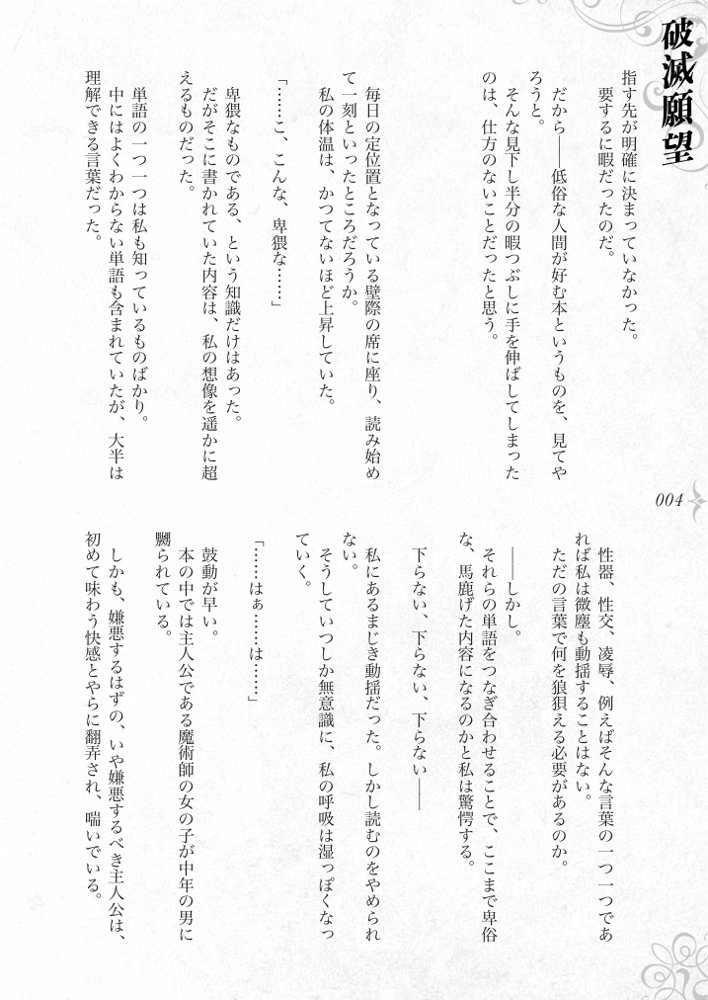 破滅願望
指す先が明確に決まっていなかった。
要するに暇だったのだ。
だから――低俗な人間が好む本というものを、見てや
ろうと。
そんな見下し半分の暇つぶしに手を伸ばしてしまった
のは、仕方のないことだったと思う。
毎日の定位置となっている壁際の席に座り、読み始め
て一刻といったところだろうか。
私の体温は、かつてないほど上昇していた。
「……こ、こんな、卑猥な……」
卑猥なものである、という知識だけはあった。
だがそこに書かれていた内容は、私の想像を遥かに超
えるものだった。
単語の一つ一つは私も知っているものばかり。
中にはよくわからない単語も含まれていたが、大半は
理解できる言葉だった。
004
性器、性交、凌辱、例えばそんな言葉の一つ一つであ
れば私は微塵も動揺することはない。
ただの言葉で何を狼狽える必要があるのか。
――しかし。
それらの単語をつなぎ合わせることで、ここまで卑俗
な、馬鹿げた内容になるのかと私は驚愕する。
下らない、下らない、下らない――
私にあるまじき動揺だった。しかし読むのをやめられ
ない。
そうしていつしか無意識に、私の呼吸は湿っぽくなっ
ていく。
「……はぁ……は……」
鼓動が早い。
本の中では主人公である魔術師の女の子が中年の男に
嬲られている。
しかも、嫌悪するはずの、いや嫌悪するべき主人公は、
初めて味わう快感とやらに翻弄され、喘いでいる。